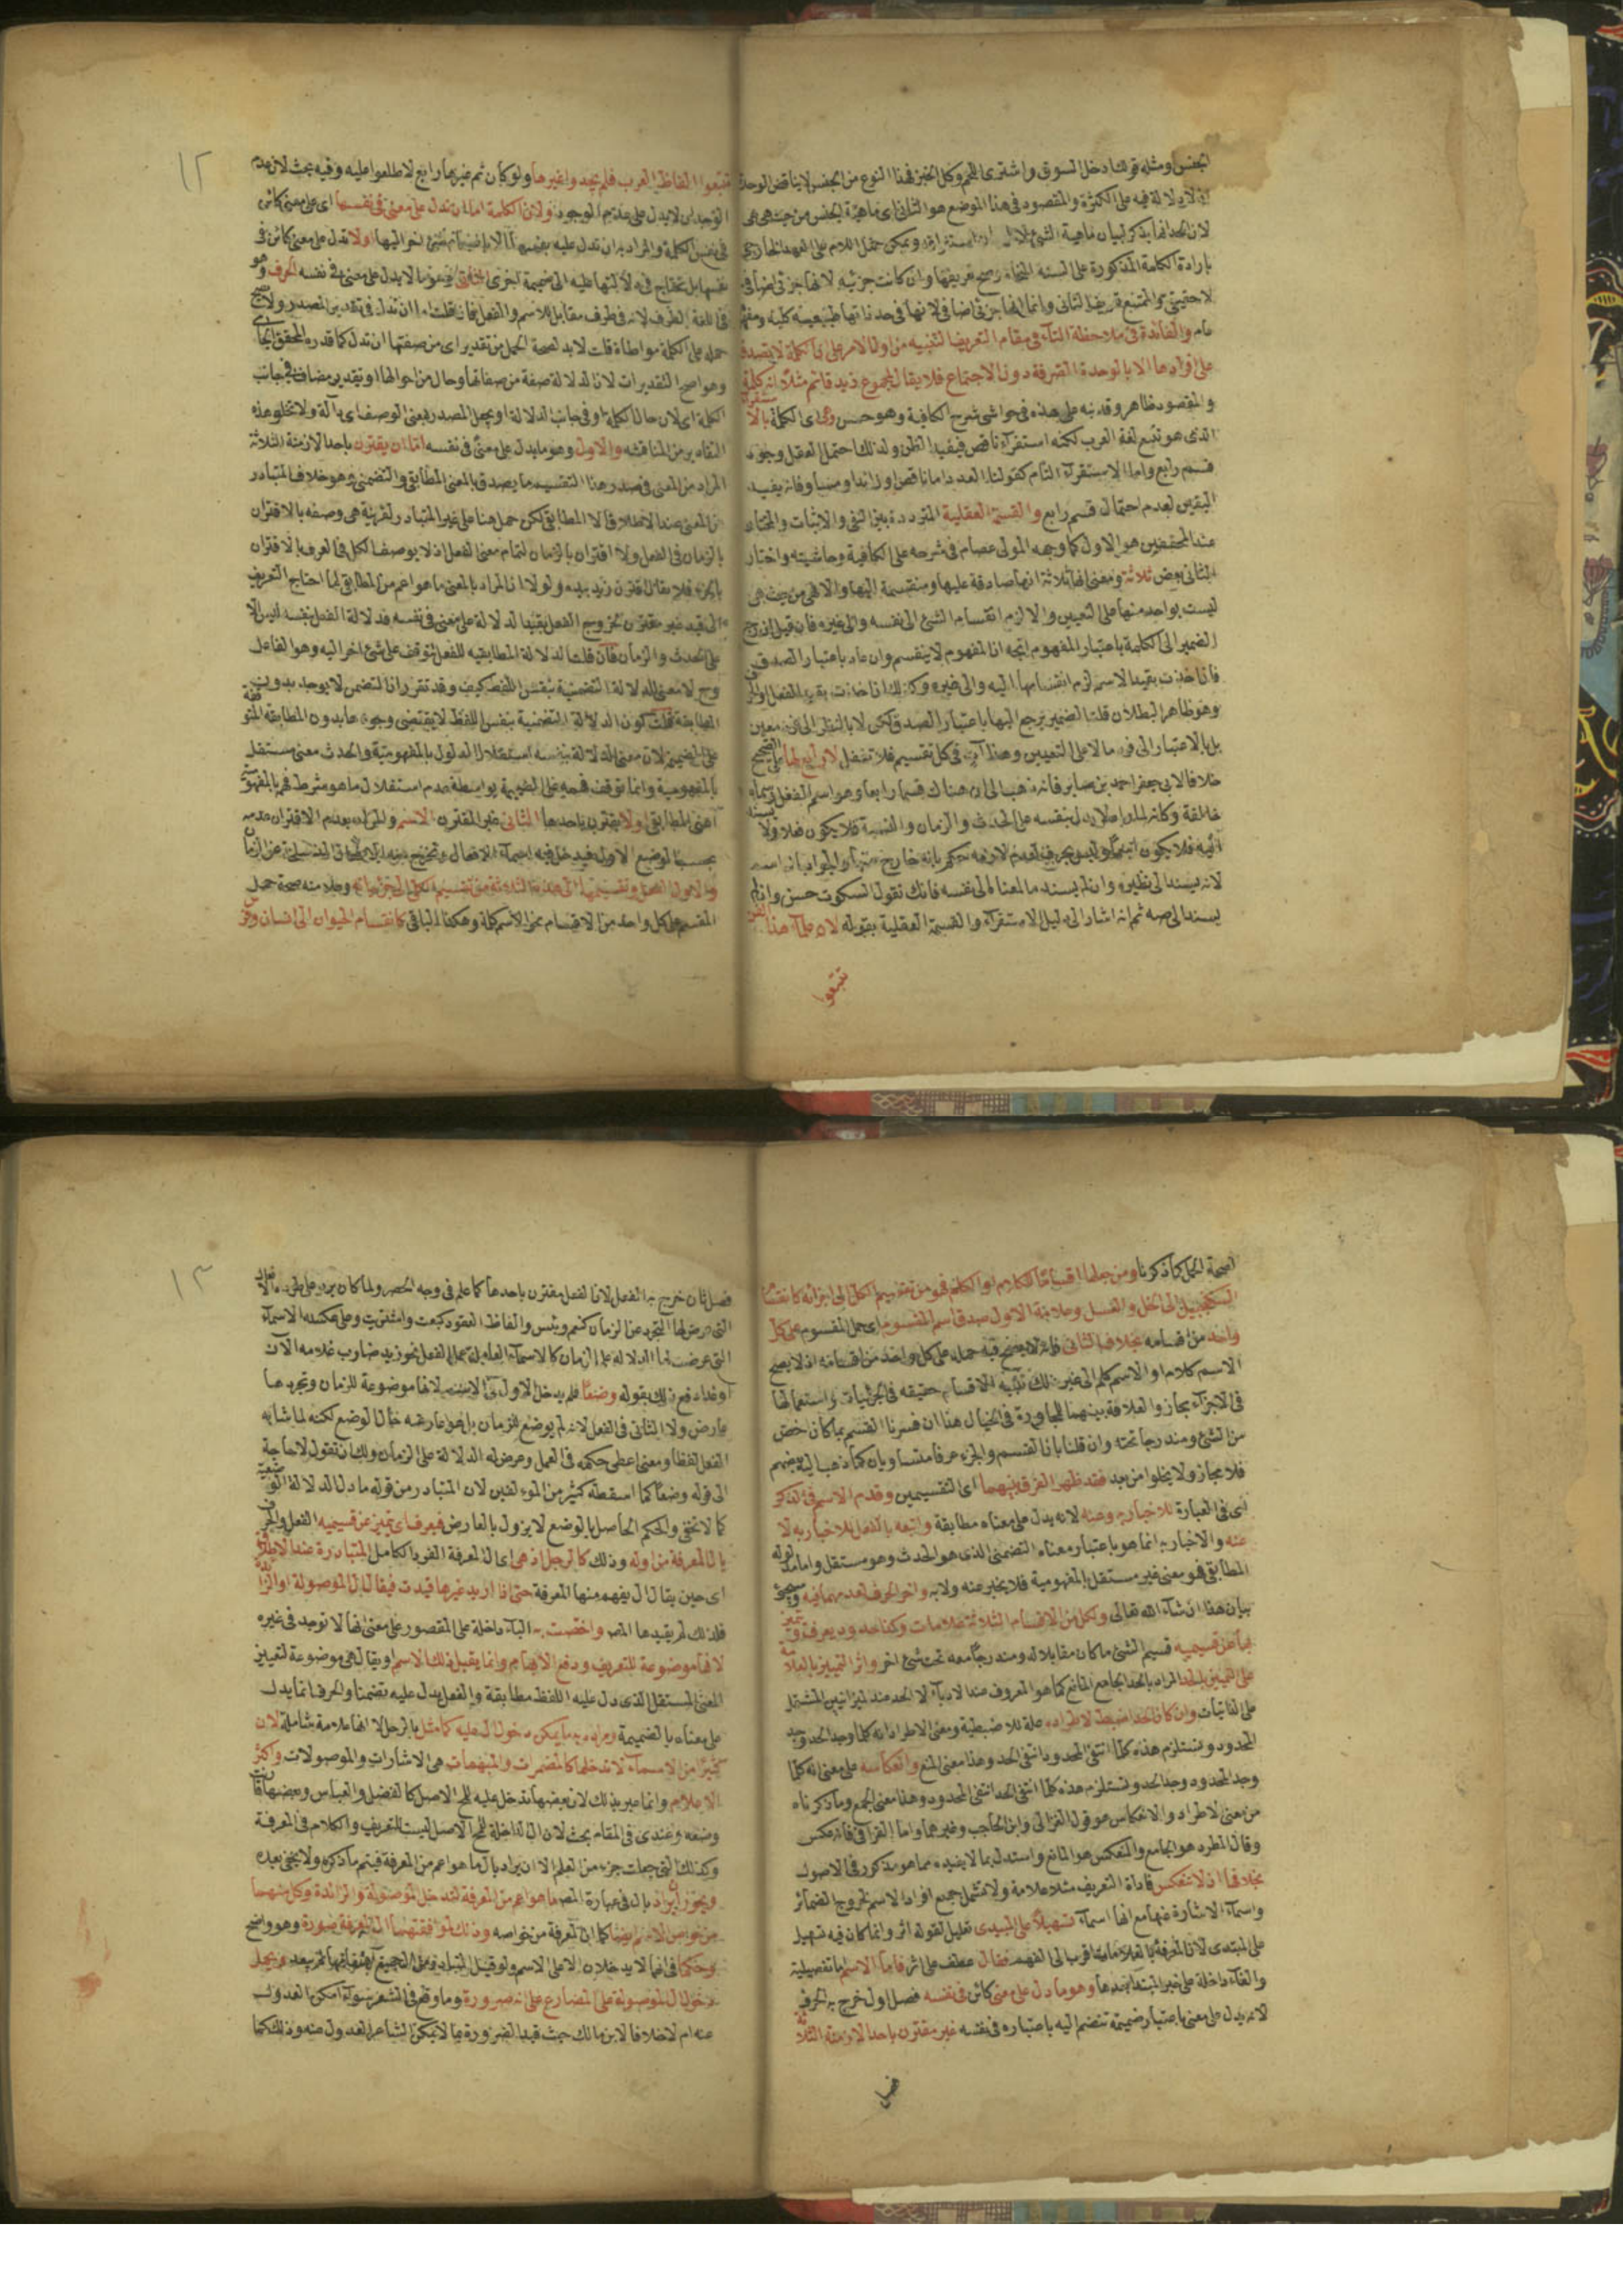 الجنس ومثله قولك ادخل السوق واشتر اللحم وكل الخبز فهذا النوع من الجنس لا يناقض الوحدة
لانه لا دلالة فيه على الكثرة والمقصود في هذا الموضع هو الثاني اي ماهية الجنس من حيث هي هي
لان الحد انما يذكر لبيان ماهية الشئ ويمكن حمل اللام على العهد الخارجي
بارادة الكلمة المذكورة على السنة النحاة
عام والفائدة في ملاحظة التاء في مقام التعريف التنبيه من اول الامر على ان الكلمة لا تصدق
على افرادها الا بالوحدة الصرفة دون الاجتماع فلا يقال لمجموع زيد قائم مثلا انه كلمة
والمقصود ظاهر وقد نبه على هذه في حواشي شرح الكافية وهو حسن وهي اي الكلمة بالاستقراء
الذي هو تتبع لغة العرب لكنه استقراء ناقص فيفيد الظن ولذلك احتمل العقل وجود
قسم رابع واما الاستقراء التام كقولنا العدد اما ناقص او زائد او مساو فانه يفيد
اليقين لعدم احتمال قسم رابع والقسمة العقلية المترددة بين النفي والاثبات والمختار
عند المحققين هو الاول كما وجهه المولى عصام في شرحه على الكافية وحاشيته واختار
الثاني بعض ثلاثة ومعنى انها ثلاثة انها صادقة عليها ومنقسمة اليها والا فهي من حيث هي
ليست بواحد منها على التعيين والا لزم انقسام الشئ الى نفسه والى غيره فان قيل ان رجع
الضمير الى الكلمة باعتبار المفهوم اتجه ان المفهوم لا ينقسم وان عاد باعتبار الصدق
فان اخذت بقيد الاسم لزم انقسامها اليه والى غيره وكذلك ان اخذت بقيد الفعل او الحرف
وهو ظاهر البطلان قلنا الضمير يرجع اليها باعتبار الصدق لكن لا بالنظر الى فرد معين
بل بالاعتبار الى فرد ما لا على التعيين وهذا آت في كل تقسيم فلا تغفل لا رابع لها على الصحيح
خلافا لابي جعفر احمد بن صابر فانه ذهب الى ان هناك قسما رابعا وهو اسم الفعل وسماه
خالفة وكانه لما رآه لا يدل بنفسه على الحدث والزمان والنسبة فلا يكون فعلا ولا
لانه يسند الى نظيره وان لم يسند ما لمعناه الى نفسه فانك تقول السكوت حسن وان لم
يسند الى صه ثم انه اشار الى دليل الاستقراء والقسمة العقلية بقوله لان علماء هذا الفن
تتبعوا
١٢
تتبعوا الفاظ العرب فلم يجدوا غيرها ولو كان ثم غيرها رابع لاطلعوا عليه وفيه بحث لان عدم
الوجدان لا يدل على عدم الوجود ولان الكلمة اما ان تدل على معنى في نفسها اي على معنى كائن
في نفس الكلمة والمراد به ان تدل عليه بنفسها لا بانضمام شئ آخر اليها او لا تدل على معنى كائن في
نفسها بل تحتاج في دلالتها عليه الى ضميمة اخرى الثاني وهو ما لا يدل على معنى في نفسه الحرف وهو
في اللغة الطرف لانه في طرف مقابل للاسم والفعل فان قلت ان تدل في تقدير المصدر ولا يصح
حمله على الكلمة مواطاة قلت لا بد لصحة الحمل من تقدير اي من صفتها ان تدل كما قدره المحقق الجامي
وهو اصح التقديرات لان الدلالة صفة من صفاتها وحال من احوالها او تقدير مضاف في جانب
الكلمة اي لان حال الكلمة او في جانب الدلالة او يجعل المصدر بمعنى الوصف اي دالة ولا تخلو هذه
التقادير من المناقشة والاول وهو ما يدل على معنى في نفسه اما ان يقترن باحد الازمنة الثلاثة
المراد من المعنى في صدر هذا التقسيم ما يصدق بالمعنى المطابقي والتضمني وهو خلاف المتبادر
من المعنى عند الاطلاق الا المطابقي لكن حمل هنا على غير المتبادر لقرينة هي وصفه بالاقتران
بالزمان في الفعل ولا اقتران بالزمان لتمام معنى الفعل اذ لا يوصف الكل في العرف بالاقتران
بالجزء فلا يقال اقترن زيد بيده ولولا ان المراد بالمعنى ما هو اعم من المطابقي لما احتاج التعريف
الى قيد غير مقترن لخروج الفعل بقيد الدلالة على معنى في نفسه فدلالة الفعل بنفسه ليس الا
على الحدث والزمان فان قلت الدلالة المطابقية للفعل تتوقف على شئ آخر اليه وهو الفاعل
وح لا معنى للدلالة التضمنية بنفس اللفظ كيف وقد تقرر ان التضمن لا يوجد بدون
المطابقة قلت كون الدلالة التضمنية بنفس اللفظ لا يقتضي وجودها بدون المطابقة المتوقفة
على الضميمة لان معنى الدلالة بنفسه استقلال المدلول بالمفهومية والحدث معنى مستقل
بالمفهومية وانما توقف فهمه على الضميمة بواسطة عدم استقلال ما هو مشروط فهمه بالمفهومية
اعني المطابقي او لا يقترن باحدها الثاني غير المقترن الاسم والمراد بعدم الاقتران عدمه
بحسب الوضع الاول فيدخل فيه اسماء الافعال وتخرج عنه الافعال المنسلخة عن الزمان
والاول الفعل وتقسيمها الى هذه الثلاثة من تقسيم الكلي الى جزئياته وعلامته صحة حمل
المقسم على كل واحد من الاقسام نحو الاسم كلمة وهكذا الباقي كانقسام الحيوان الى انسان وفرس
لصحة الحمل كما ذكرنا ومن جعلها اقساما للكلام او الكلم فهو من تقسيم الكل الى اجزائه كانقسام
السكنجبيل الى الخل والعسل وعلامة الاول صدق اسم المقسوم اي حمل المقسوم على كل
واحد من اقسامه بخلاف الثاني فانه لا يصح فيه حمله على كل واحد من اقسامه اذ لا يصح
الاسم كلام او الاسم كلم الى غير ذلك تنبيه الاقسام حقيقة في الجزئيات واستعمالها
في الاجزاء مجاز والعلاقة بينهما المجاورة في الخيال هذا ان فسرنا القسم بما كان اخص
من الشئ ومندرجا تحته وان قلنا بان القسم والجزء عرفا متساويان كما ذهب اليه بعضهم
فلا مجاز ولا يخلو من بعد فقد ظهر الفرق بينهما اي التقسيمين وقدم الاسم في الذكر
اي في العبارة للاخبار به وعنه لانه يدل على معناه مطابقة واتبعه بالفعل للاخبار به لا
عنه والاخبار به انما هو باعتبار معناه التضمني الذي هو الحدث وهو مستقل واما مدلوله
المطابقي فهو معنى غير مستقل بالمفهومية فلا يخبر عنه ولا به واخر الحرف لعدمهما فيه وسيجئ
بيان هذا ان شاء الله تعالى ولكل من الاقسام الثلاثة علامات وكذا حدود يعرف ويتميز
بها عن قسيميه قسيم الشئ ما كان مقابلا له ومندرجا معه تحت شئ آخر واثر التمييز بالعلامة
على التمييز بالحد المراد بالحد الجامع المانع كما هو المعروف عند الادباء لا الحد عند الميزانيين المشتمل
على الذاتيات وان كان الحد اضبط لاطراده علة للاضبطية ومعنى الاطراد انه كلما وجد الحد وجد
المحدود وتستلزم هذه كلما انتفى المحدود انتفى الحد وهذا معنى المنع وانعكاسه على معنى انه كلما
وجد المحدود وجد الحد وتستلزم هذه كلما انتفى الحد انتفى المحدود وهذا معنى الجمع وما ذكرناه
من معنى الاطراد والانعكاس هو قول الغزالي وابن الحاجب وغيرهما واما القرافي فانه عكس
وقال المطرد هو الجامع والمنعكس هو المانع واستدل بما لا يفيده مما هو مذكور في الاصول
بخلافها اذ لا تنعكس فاداة التعريف مثلا علامة ولا تشمل جميع افراد الاسم لخروج الضمائر
واسماء الاشارة عنها مع انها اسماء تسهيلا على المبتدي تعليل لقوله اثر وانما كان فيه تسهيل
على المبتدى لان المعرفة بالعلامات اقرب الى الفهم فقال عطف على اثر فاما الاسم اما تفصيلية
والفاء داخلة على خبر المبتدا بعدها وهو ما دل على معنى كائن في نفسه فصل اول خرج به الحرف
لانه يدل على معنى باعتبار ضميمة تنضم اليه باعتباره في نفسه غير مقترن باحد الازمنة الثلاثة
فصل
١٣
فصل ثان خرج به الفعل لان الفعل مقترن باحدها كما علم في وجه الحصر ولما كان يرد على طرده الافعال
التي عرض لها التجرد عن الزمان كنعم وبئس والفاظ العقود كبعت واشتريت وعلى عكسه الاسماء
التي عرضت لها الدلالة على الزمان كالاسماء العاملة عمل الفعل نحو زيد ضارب غلامه الآن
او غدا دفع ذلك بقوله وضعا فلم يدخل الاول لانها موضوعة للزمان وتجردها
عارض ولا الثاني في الفعل لانه لم يوضع للزمان بل هو عارضه خال الوضع لكنه لما شابه
الفعل لفظا ومعنى اعطي حكمه في العمل وعرض له الدلالة على الزمان ولك ان تقول لا حاجة
الى قوله وضعا كما اسقطه كثير من المؤلفين لان المتبادر من قوله ما دل الدلالة الوضعية
كما لا تخفى والحكم الحاصل بالوضع لا يزول بالعارض فيعرف اي يتميز عن قسيميه الفعل والحرف
بال المعرفة من اوله وذلك كالرجل اذ هي اي ال المعرفة الفرد الكامل المتبادرة عند الاطلاق
اي حين يقال ال يفهم منها المعرفة حتى اذا اريد غيرها قيدت فيقال ال الموصولة او الزائدة
فلذلك لم يقيدها المص واختصت به الباء داخلة على المقصور على معنى انها لا توجد في غيره
لانها موضوعة للتعريف ودفع الابهام وانما يقبل ذلك الاسم او يقال هي موضوعة لتعيين
المعنى المستقل الذي دل عليه اللفظ مطابقة والفعل يدل عليه تضمنا والحرف انما يدل
على معناه بالضميمة ومراده ما يمكن دخول ال عليه كما مثل بالرجل لا انها علامة شاملة لان
كثيرا من الاسماء لا تدخلها كالمضمرات والمبهمات هي الاشارات والموصولات واكثر
الاعلام وانما عبر بذلك لان بعضها تدخل عليه للمح الاصل كالفضل والعباس وبعضها قارنت
وضعه وعندي في المقام بحث لان ال الداخلة للمح الاصل ليست للتعريف والكلام في المعرفة
وكذلك التي جعلت جزء من العلم الا ان يراد بال ما هو اعم من المعرفة فيتم ما ذكره ولا يخفى بعده
ويجوز ان يراد بال في عبارة المص ما هو اعم من المعرفة لتدخل الموصولة والزائدة وكل منهما
من خواص الاسم ايضا كما ان المعرفة من خواصه وذلك لموافقتهما ال المعرفة صورة وهو واضح
وحكما في انهما لا يدخلان الا على الاسم
دخول ال الموصولة على المضارع على انه ضرورة وما وقع في الشعر سواء امكن العدول
عنه ام لا خلافا لابن مالك حيث قيد الضرورة بما لا يمكن الشاعر العدول عنه وذلك كما